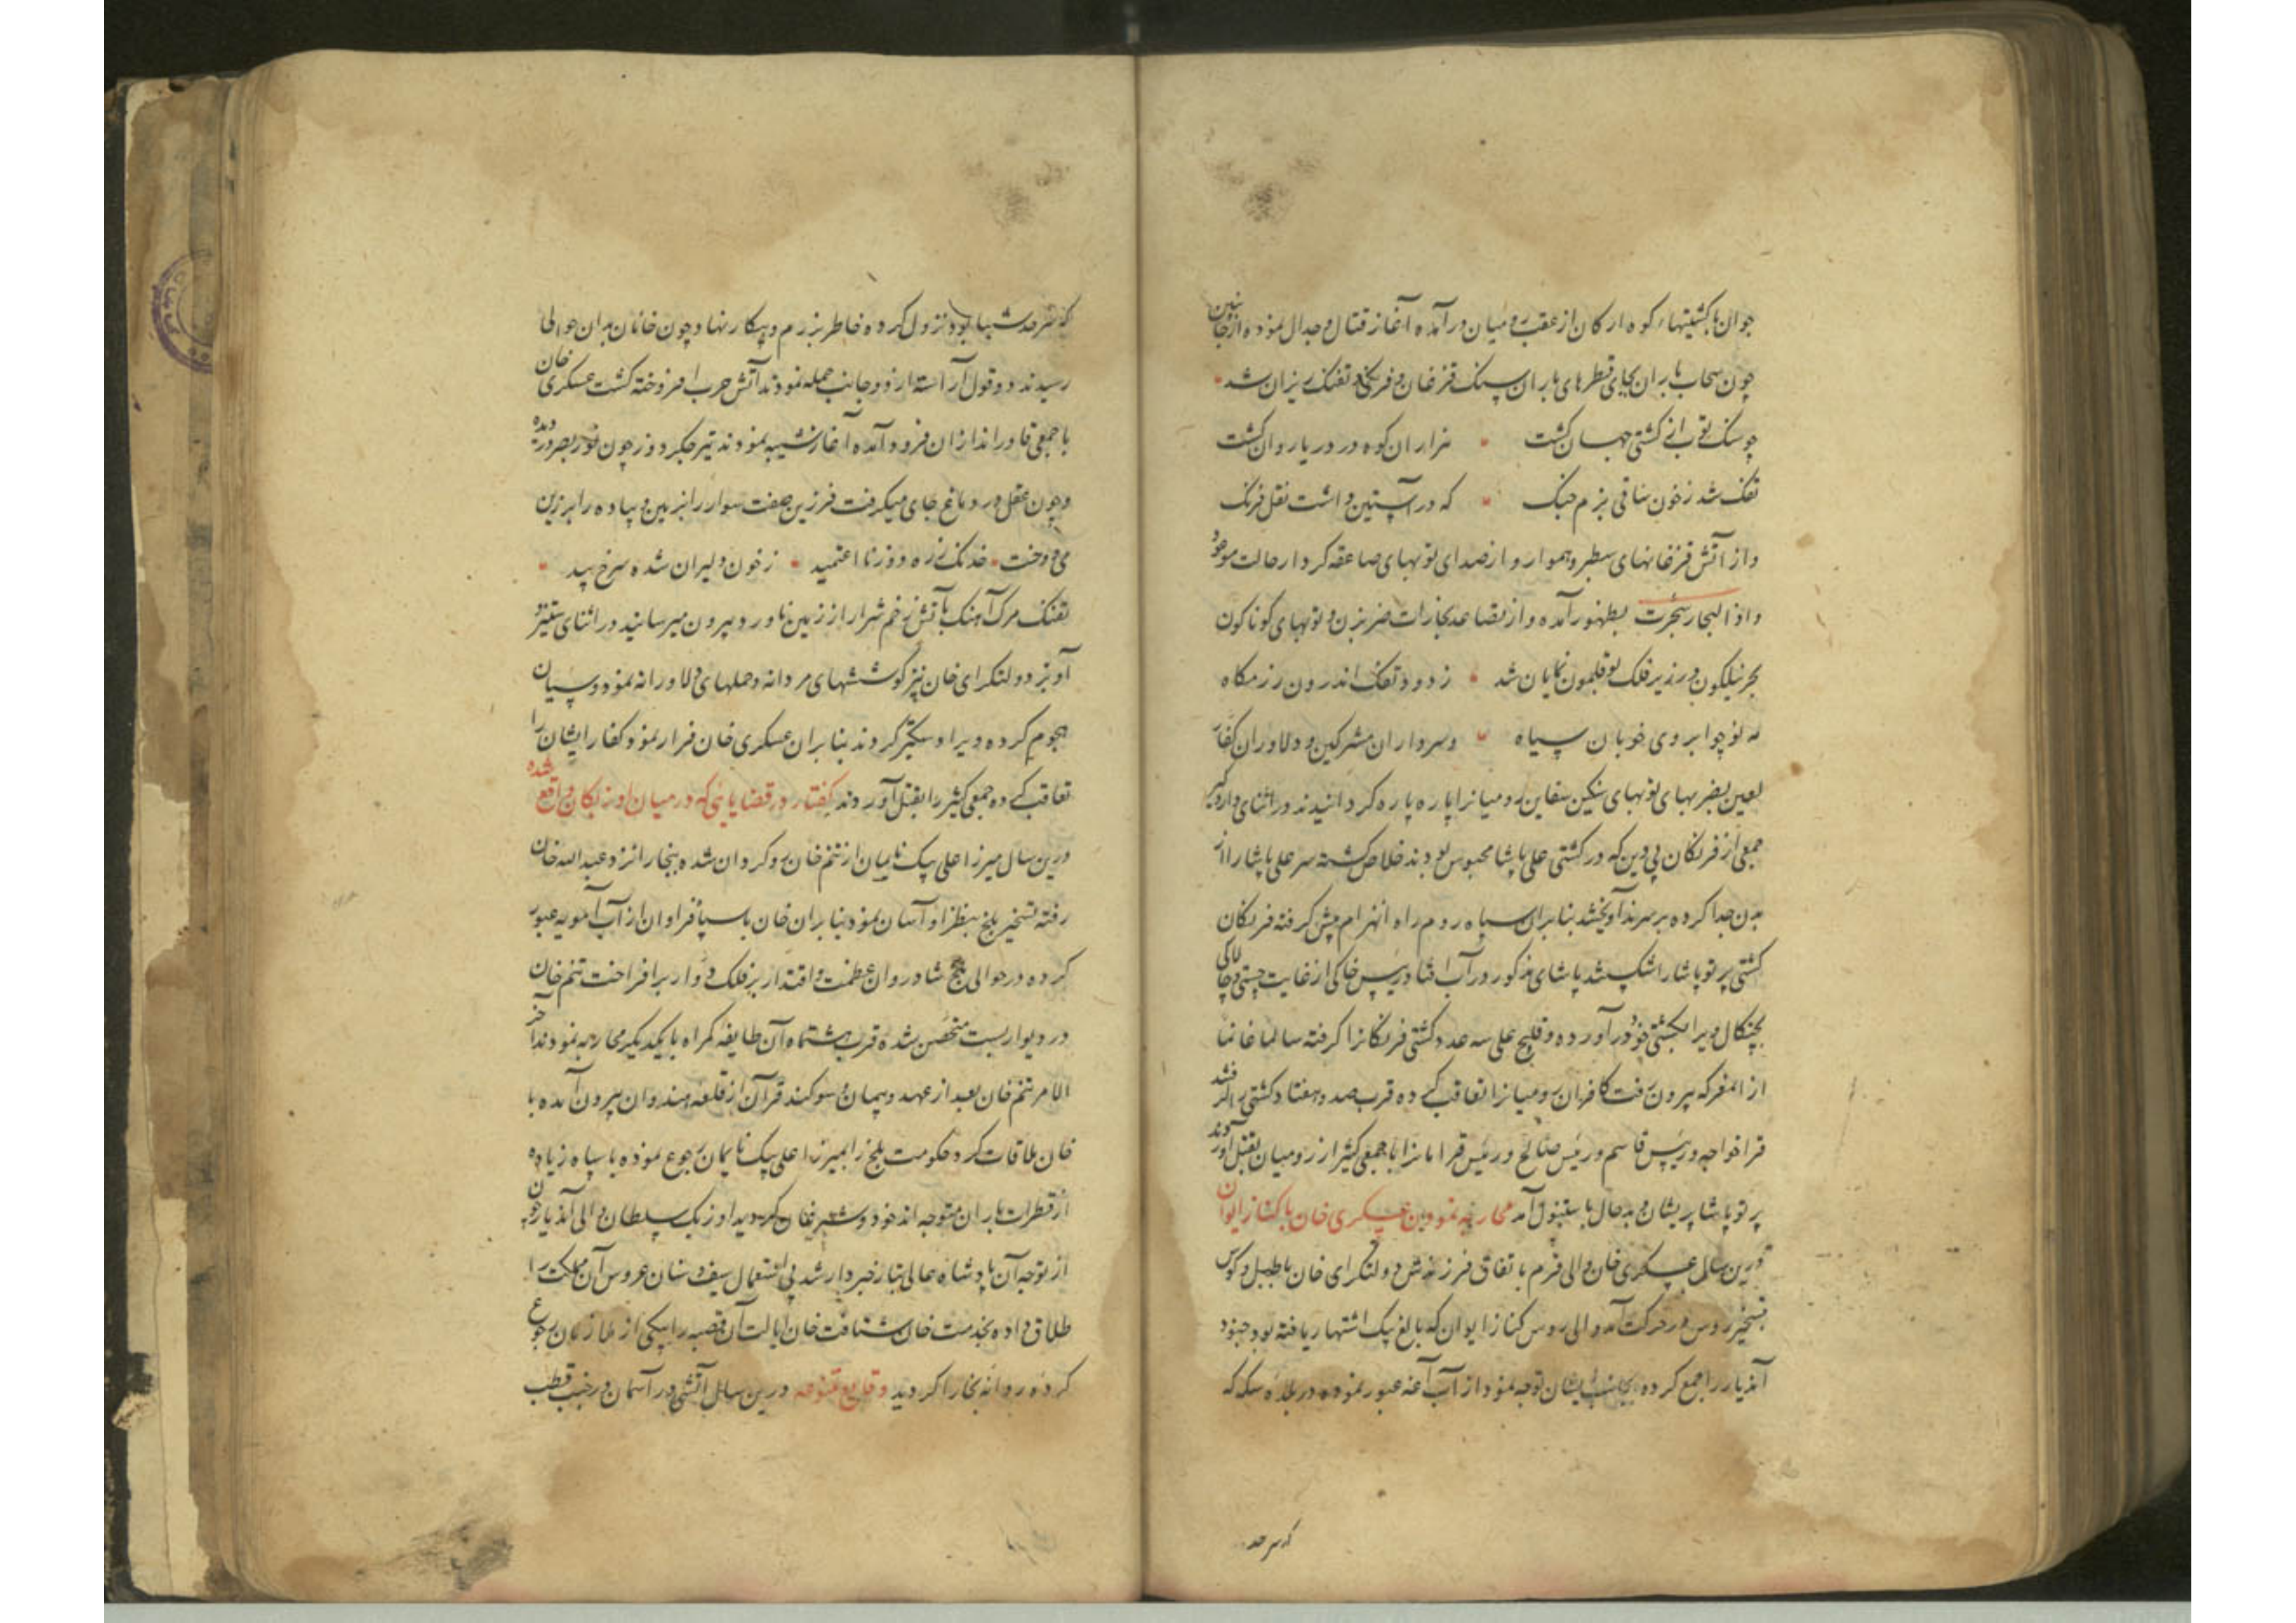 جوانها کشتیهاء کوه ارکان از عقب رومیان در آمده آغاز قتال و جدال نموده از جانبین
چون سحاب باران بجای قطرهای باران سنک قزغان و فرنکی و تفنک ریزان شد
چو سنک توب از کشتی جهان کشت هزاران کوه در دریا روان کشت
تفک شد ز خون ساقی بزم جنک که در آستین داشت نقل فرنک
و از آتش قزغانهای سطبر و هموار و از صدای توبهای صاعقه کردار حالت موعود
و اذا البحار سجرت بظهور آمده و از تصاعد بخارات ضربزن و توبهای کوناکون
بحر نیلکون در زیر فلک بوقلمون نمایان شد ز دود تفک اندرون رزمکاه
مه نو چو ابروی خوبان سیاه و سرداران مشرکین و دلاوران کفار
لعین بضربهای توبهای سنکین سفاین رومیانرا پاره پاره کردانیدند در اثنای داروکیر
جمعی از فرنکان بی دین که در کشتی علی پاشا محبوس بودند خلاص کشته سر علی پاشا را از
بدن جدا کرده بر سرند آویختند بنابران سپاه روم راه انهزام پیش کرفته فرنکان
کشتی پرتو پاشا را شکستند پاشای مذکور در آب افتاد رئیس خاکی از غایت چستی و چالاکی
بچنکال ویرا بکشتی خود در آورده و قلیج علی سه عدد کشتی فرنکانرا کرفته سالما غانما
از المعرکه بیرون رفت کافران رومیانرا تعاقب کرده قرب صد و هفتاد کشتی را کرفتند
قرا خواجه و رئیس قاسم و رئیس صالح و رئیس قرا مانرا با جمعی کثیر از رومیان بقتل آوردند
پرتو پاشا پریشان و بدحال باستنبول آمد محاربه نمودن عسکری خان با کناز ایوان
درین سال عسکری خان والی قرم باتفاق فرزندش دولتکرای خان با طبل و کوس
بتسخیر روس در حرکت آمد والی روس کناز ایوان که بالغ بیک اشتهار یافته بود جنود
آندیار را جمع کرده بجانب ایشان توجه نمود از آب آغنه عبور نموده در بلده سکه که
که سرحد
که سرحد شیبا بود نزول کرده خاطر بزرم و پیکار نهاد و چون خانان بدان حوالی
رسیدند دو قول آراسته از دو جانب حمله نمودند آتش حرب افروخته کشت عسکری خان
با جمعی قادراندازان فرود آمده آغاز شیبه نمودند تیر جکر دوز چون نور بصر در دیده
و چون عقل در دماغ جای میکرفت فرزین صفت سوار را بزمین و پیاده را بر زین
می دوخت خدنک زره دوز تا اعتمید ز خون دلیران شده سرخ بید
تفنک مرک آهنک بآتش زخم شرار از زمین ناورد بیرون میرسانید در اثنای ستیز و
آویز دولتکرای خان نیز کوششهای مردانه و حملهای دلاورانه نمود و سپیان
هجوم کرده ویرا دستکیر کردند بنابران عسکری خان فرار نمود کفار ایشان را
تعاقب کرده جمعی کثیر را بقتل آوردند کفتار در قضایایی که در میان اوزبکان واقع شده
درین سال میرزا علی بیک نایمان از تنم خان رو کردان شده ببخارا نزد عبدالله خان
رفته تسخیر بلخ بنظر او آسان نمود بنابران خان با سپاه فراوان از آب آمویه عبور
کرده در حوالی بلخ شادروان عظمت و اقتدار بر فلک دوار بر افراخت تنم خان
در دیواربست متحصن شده قرب هشتماه آن طایفه کمراه با یکدیکر محاربه نمودند آخر
الامر تنم خان بعد از عهد و پیمان و سوکند قرآن از قلعه هندوان بیرون آمده با
خان ملاقات کرد حکومت بلخ را بمیرزا علی بیک نایمان رجوع نموده با سپاه زیاده
از قطرات باران متوجه اندخود و شبرغان کردید اوزبک سلطان والی آندیار چون
از توجه آن پادشاه عالی تبار خبردار شد بی استعمال سیف و سنان عروس آن مملکت را
طلاق داده بخدمت خان شتافت خان ایالت آن قصبه را بیکی از ملازمان رجوع
کرده روانه بخارا کردید وقایع متنوعه درین سال آتشی در آسمان در جنب قطب